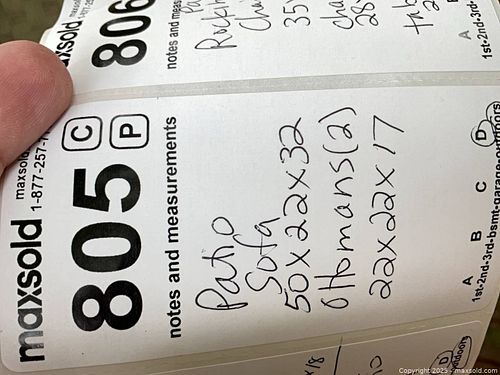 maxsold
maxsold
1-877-257-7
805
C
P
notes and measurements
Patio
Sofa
50x22x32
Ottomans(2)
22x22x17
A B C D
1st-2nd-3rd-bsmt-garage-outdoors
806
notes and meas
Chai
35x
cha
28x
tab
A
1st-2nd-3rd-
D
outdoors
Copyright 2025 - maxsold.com